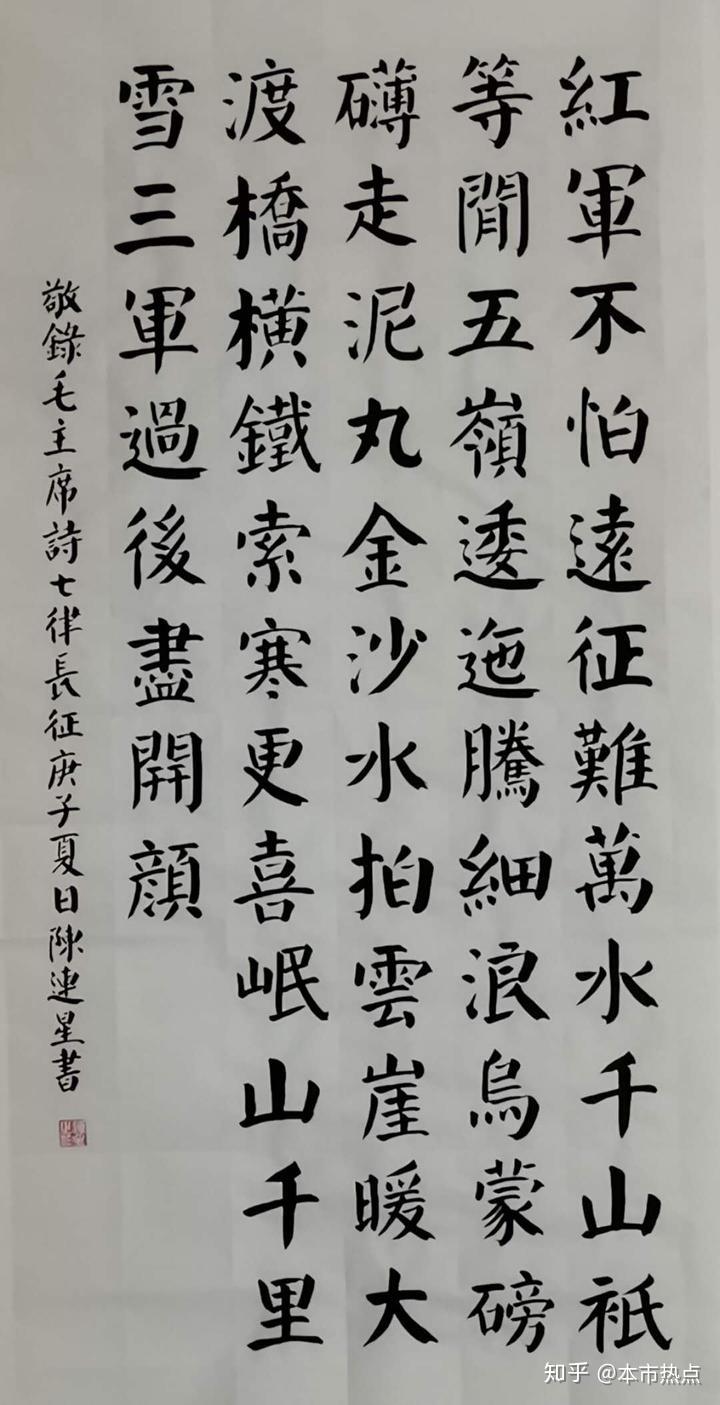 紅軍不怕遠征難萬水千山祇
等閒五嶺逶迤騰細浪烏蒙磅
礴走泥丸金沙水拍雲崖暖大
渡橋橫鐵索寒更喜岷山千里
雪三軍過後盡開顔
敬錄毛主席詩七律長征庚子夏日陳連星書
知乎 @本市热点